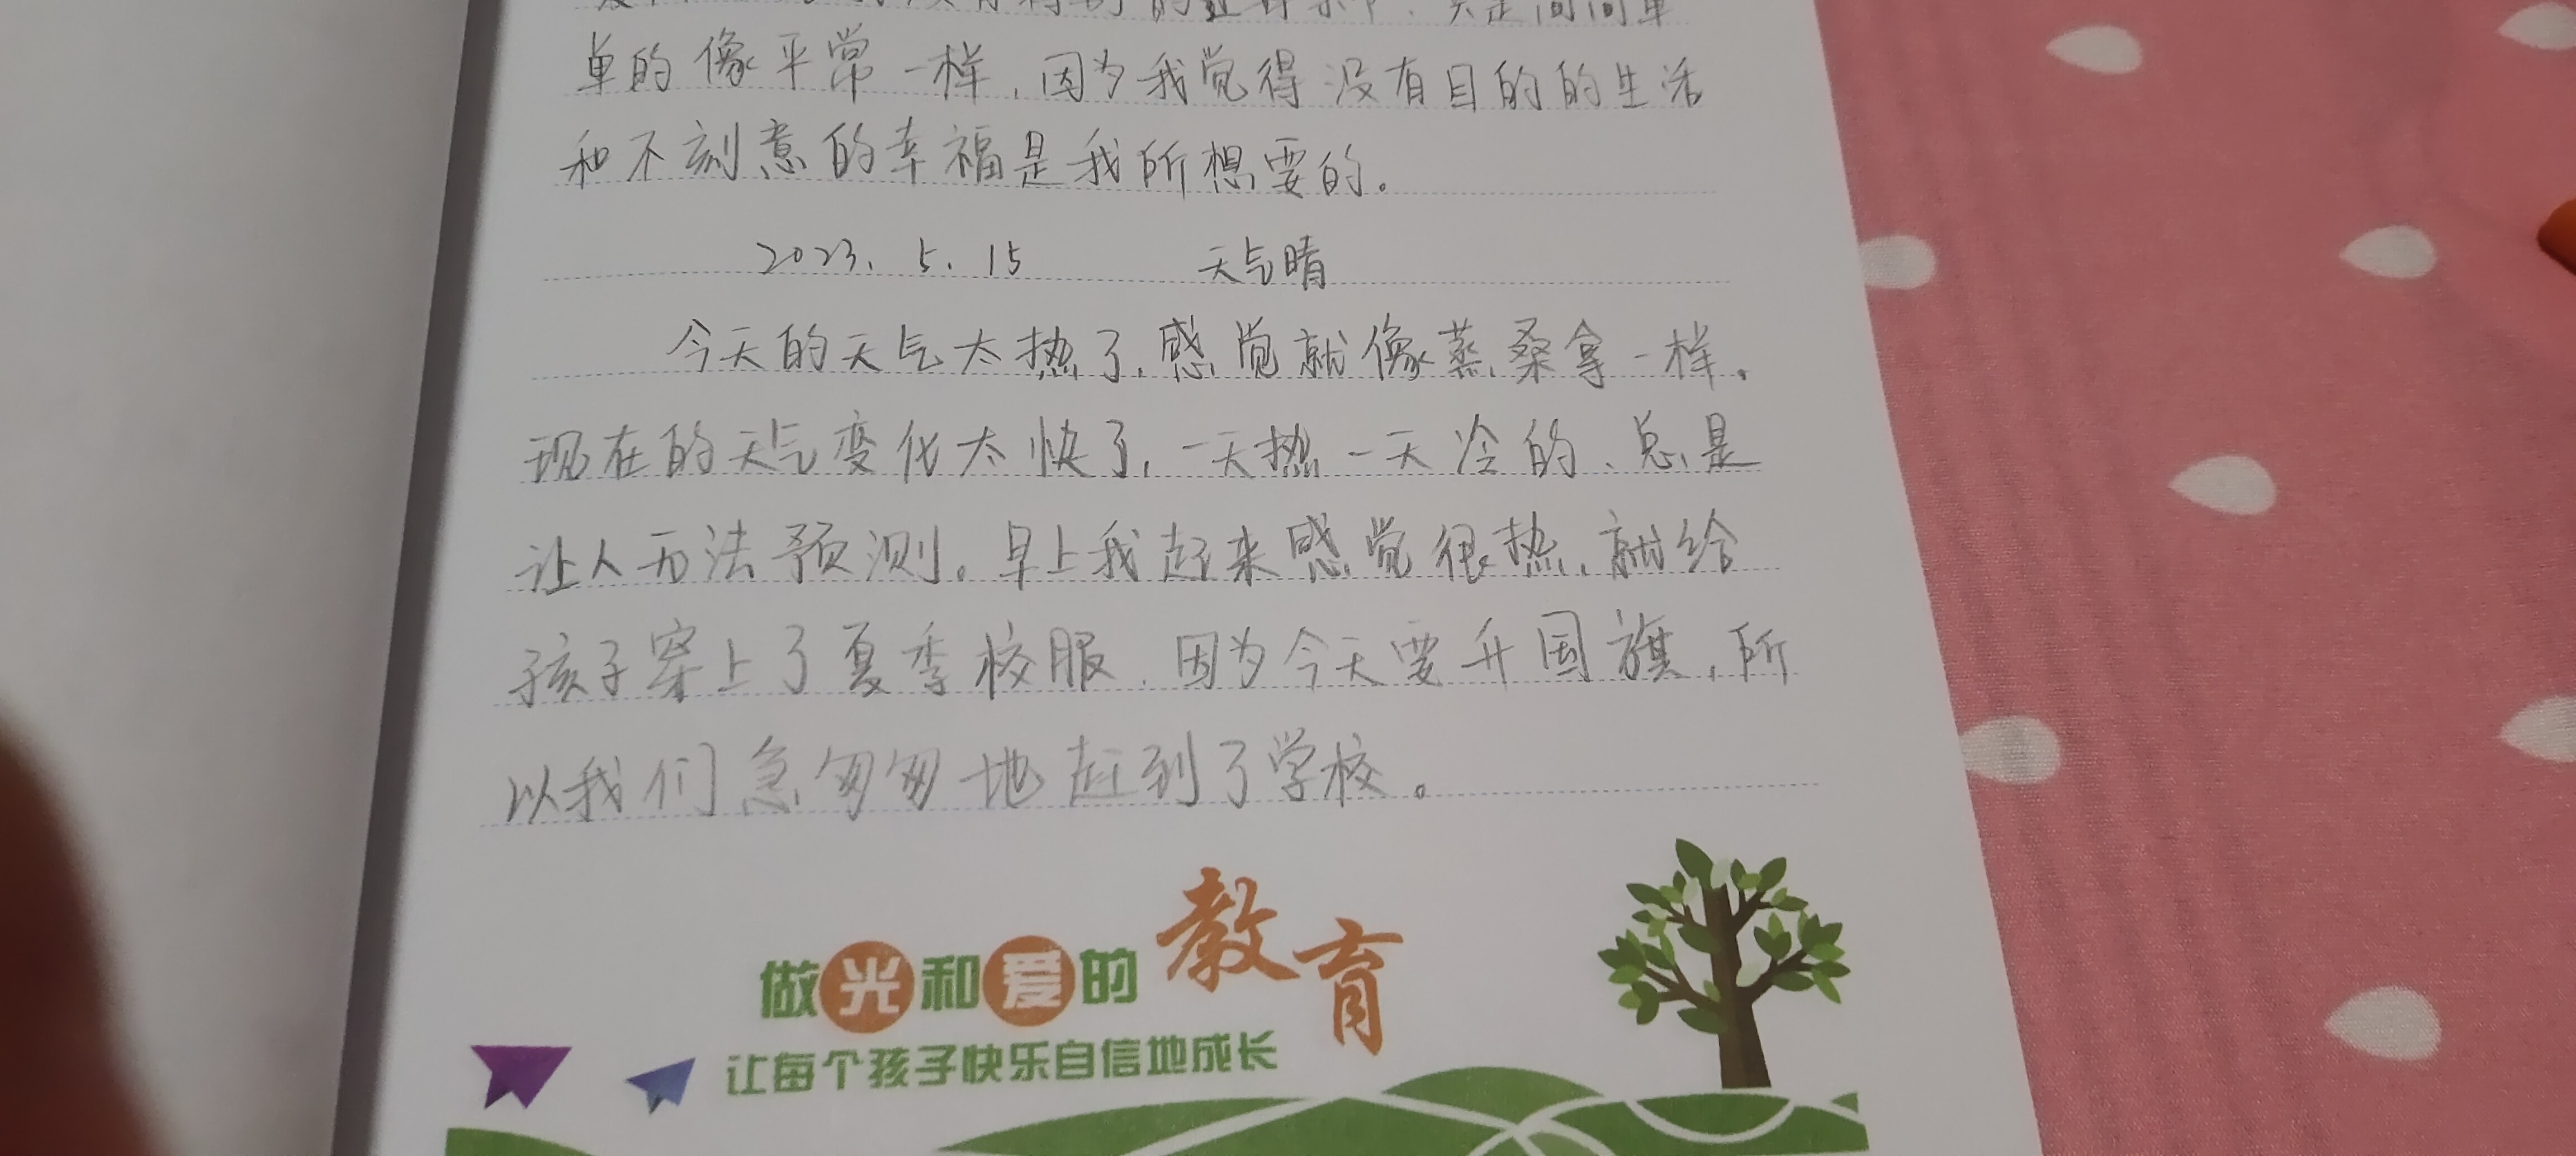 只是简简单
单的像平常一样，因为我觉得没有目的的生活
和不刻意的幸福是我所想要的。
2023.5.15 天气晴
今天的天气太热了，感觉就像蒸桑拿一样。
现在的天气变化太快了，一天热一天冷的、总是
让人无法预测。早上我起来感觉很热，就给
孩子穿上了夏季校服，因为今天要升国旗，所
以我们急匆匆地赶到了学校。
做光和爱的教育
让每个孩子快乐自信地成长